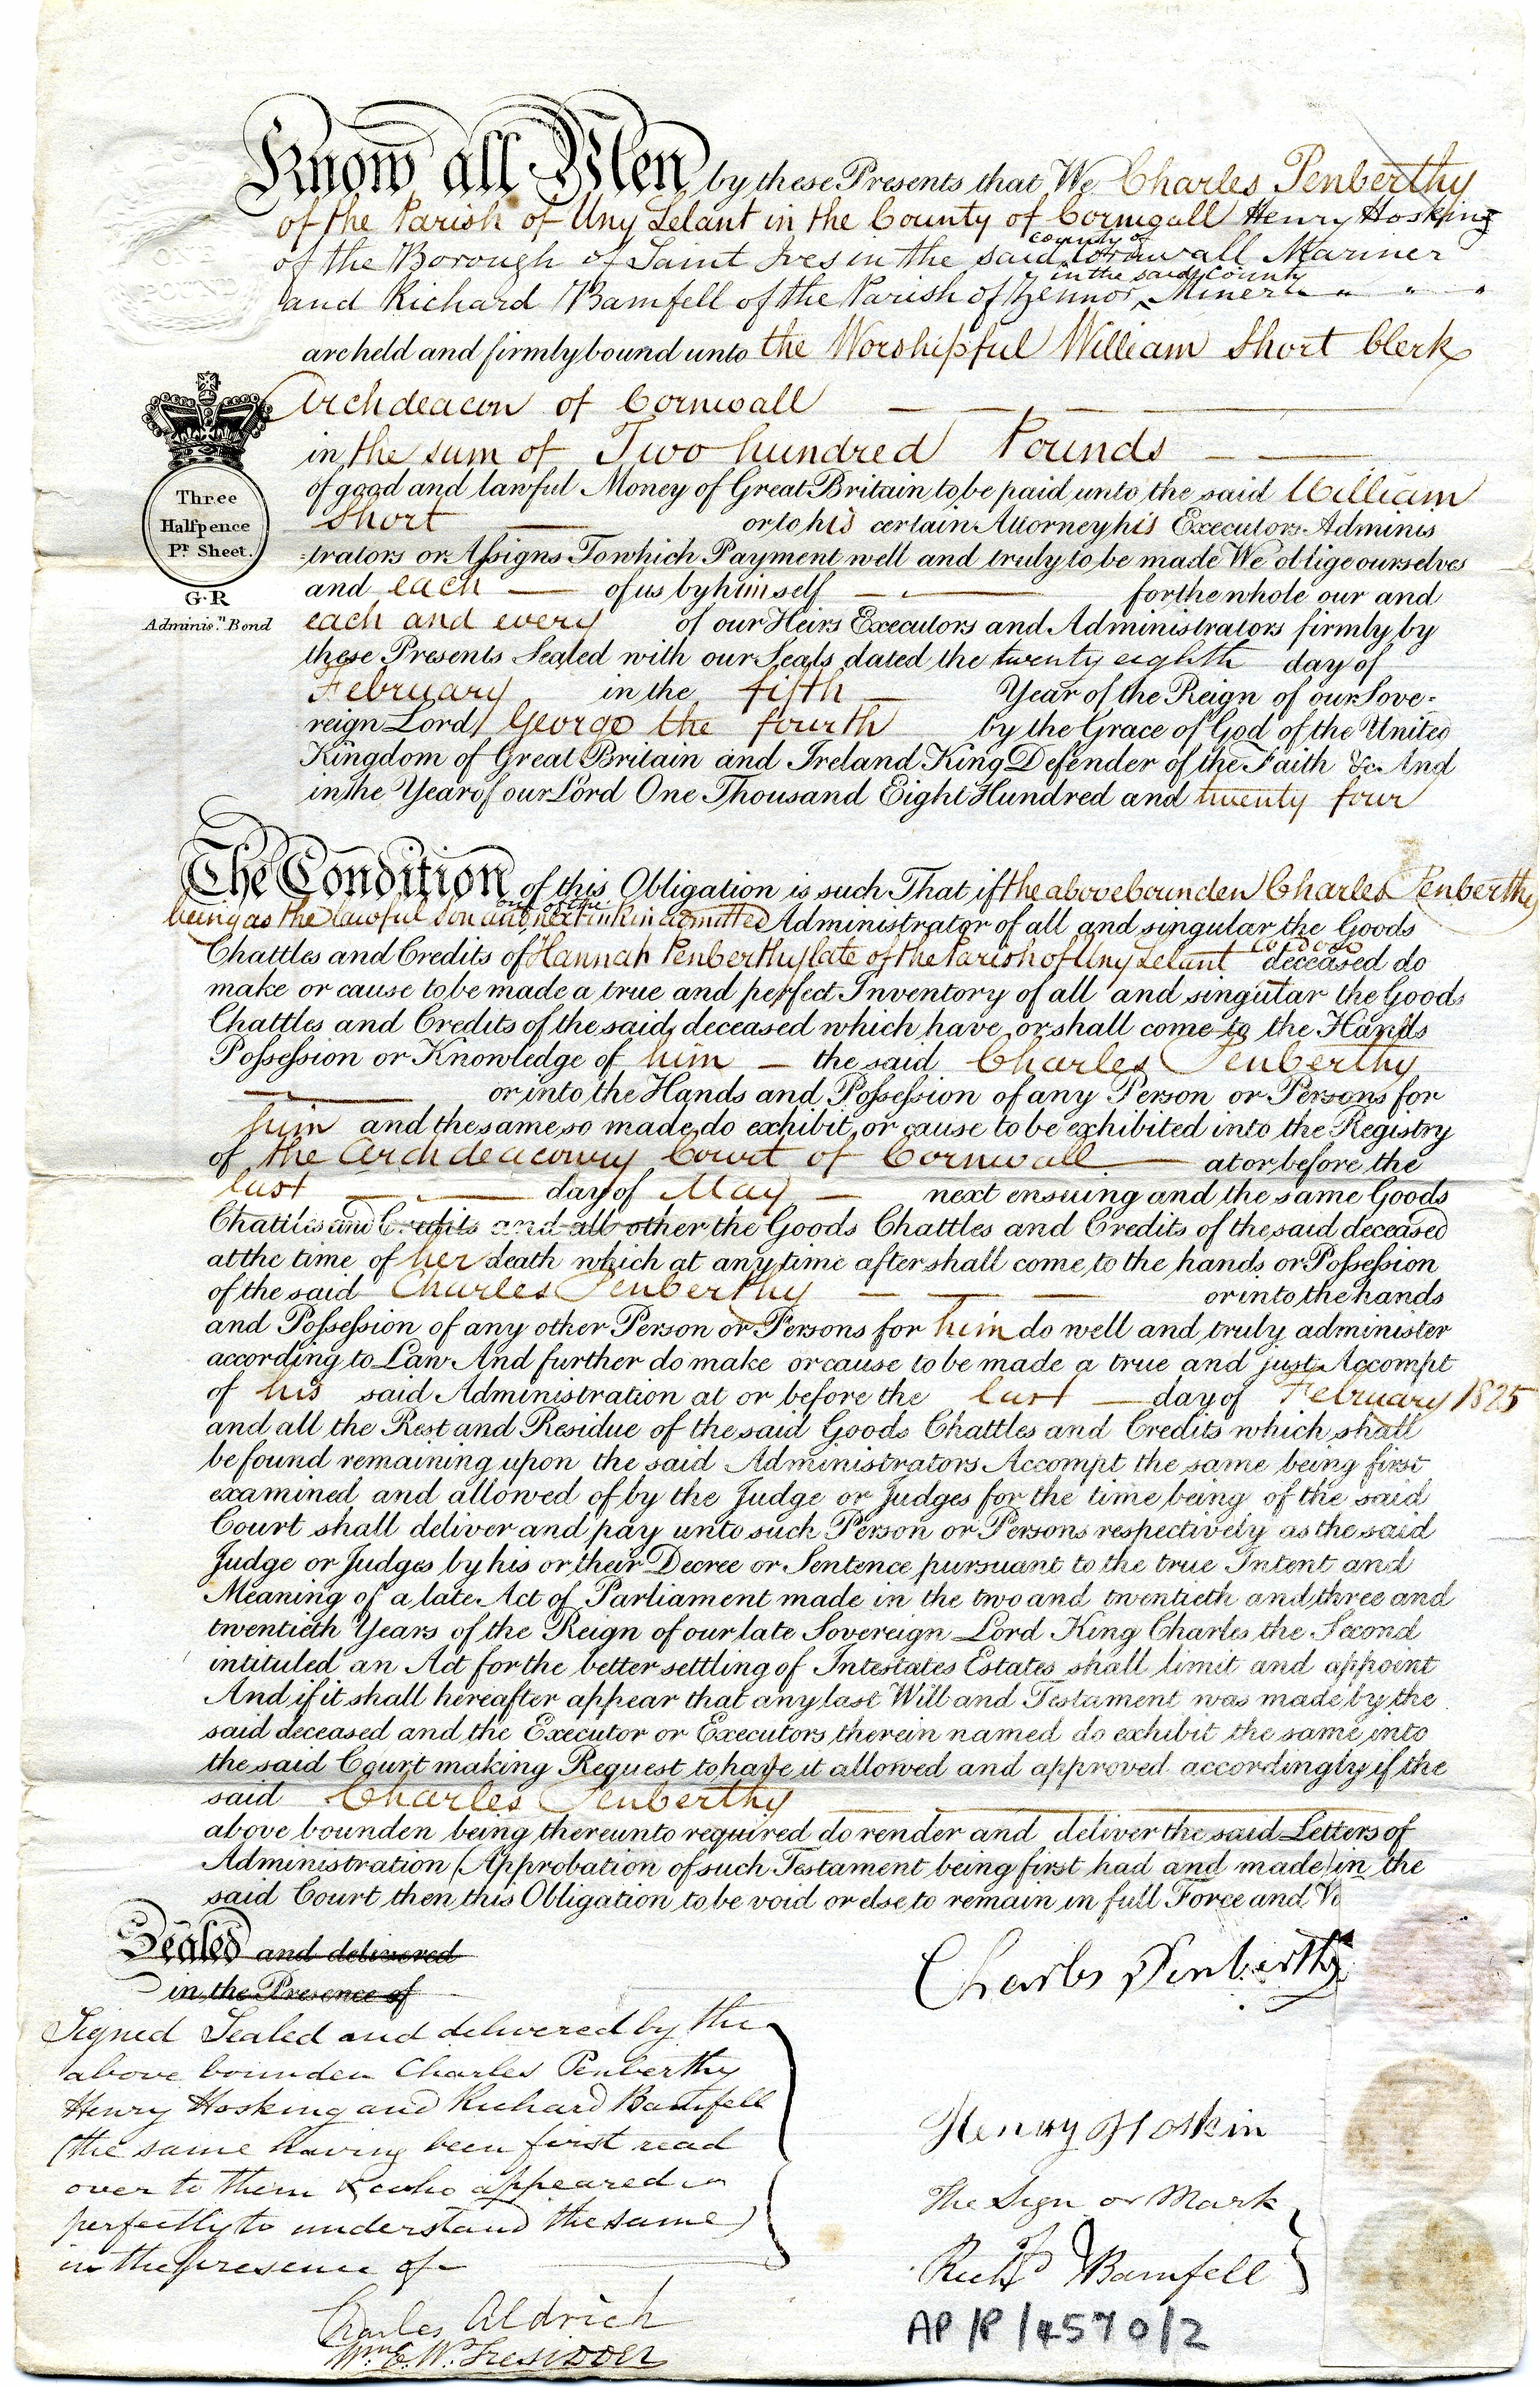 Know all Men by these Presents that We Charles Penberthy
of the Parish of Uny Lelant in the County of Cornwall Henry Hosking
of the Borough of Saint Ives in the said County of Cornwall Mariner
and Richard Bamfell of the Parish of Zennor in the said County Miner
are held and firmly bound unto the Worshipful William Short Clerk
Archdeacon of Cornwall
in the sum of Two hundred Pounds
of good and lawful Money of Great Britain to be paid unto the said William
Short or to his certain Attorney his Executors Adminis
Three
Halfpence
Pr. Sheet.
G.R
Adminis.n Bond
:trators or Assigns To which Payment well and truly to be made We oblige ourselves
and each of us by himself for the whole our and
each and every of our Heirs Executors and Administrators firmly by
these Presents Sealed with our Seals dated the twenty eighth day of
February in the fifth Year of the Reign of our Sove-
reign Lord George the fourth by the Grace of God of the United
Kingdom of Great Britain and Ireland King Defender of the Faith &c. And
in the Year of our Lord One Thousand Eight Hundred and twenty four
The Condition of this Obligation is such That if the above bounden Charles Penberthy
being as the lawful Son and one of the next in kin admitted Administrator of all and singular the Goods
Chattles and Credits of Hannah Penberthy late of the Parish of Uny Lelant deceased do
make or cause to be made a true and perfect Inventory of all and singular the Goods
Chattles and Credits of the said deceased which have or shall come to the Hands
Possession or Knowledge of him the said Charles Penberthy
or into the Hands and Possession of any Person or Persons for
him and the same so made do exhibit or cause to be exhibited into the Registry
of the Archdeaconry Court of Cornwall at or before the
last day of May next ensuing and the same Goods
Chattles and Credits and all other the Goods Chattles and Credits of the said deceased
at the time of her death which at any time after shall come to the hands or Possession
of the said Charles Penberthy or into the hands
and Possession of any other Person or Persons for him do well and truly administer
according to Law And further do make or cause to be made a true and just Accompt
of his said Administration at or before the last day of February 1825
and all the Rest and Residue of the said Goods Chattles and Credits which shall
be found remaining upon the said Administrators Accompt the same being first
examined and allowed of by the Judge or Judges for the time being of the said
Court shall deliver and pay unto such Person or Persons respectively as the said
Judge or Judges by his or their Decree or Sentence pursuant to the true Intent and
Meaning of a late Act of Parliament made in the two and twentieth and three and
twentieth Years of the Reign of our late Sovereign Lord King Charles the Second
intituled an Act for the better settling of Intestates Estates shall limit and appoint
And if it shall hereafter appear that any last Will and Testament was made by the
said deceased and the Executor or Executors therein named do exhibit the same into
the said Court making Request to have it allowed and approved accordingly if the
said Charles Penberthy
above bounden being thereunto required do render and deliver the said Letters of
Administration (Approbation of such Testament being first had and made) in the
said Court then this Obligation to be void or else to remain in full Force and Vi
Sealed and delivered
in the Presence of
Charles Penberthy
Signed Sealed and delivered by the
above bounden Charles Penberthy
Henry Hosking and Richard Bamfell
(the same having been first read
over to them & who appeared
perfectly to understand the same)
in the presence of
Henry Hoskin
The Sign or Mark
of
Richd Bamfell
Charles Aldrich
AP/P/4570/2